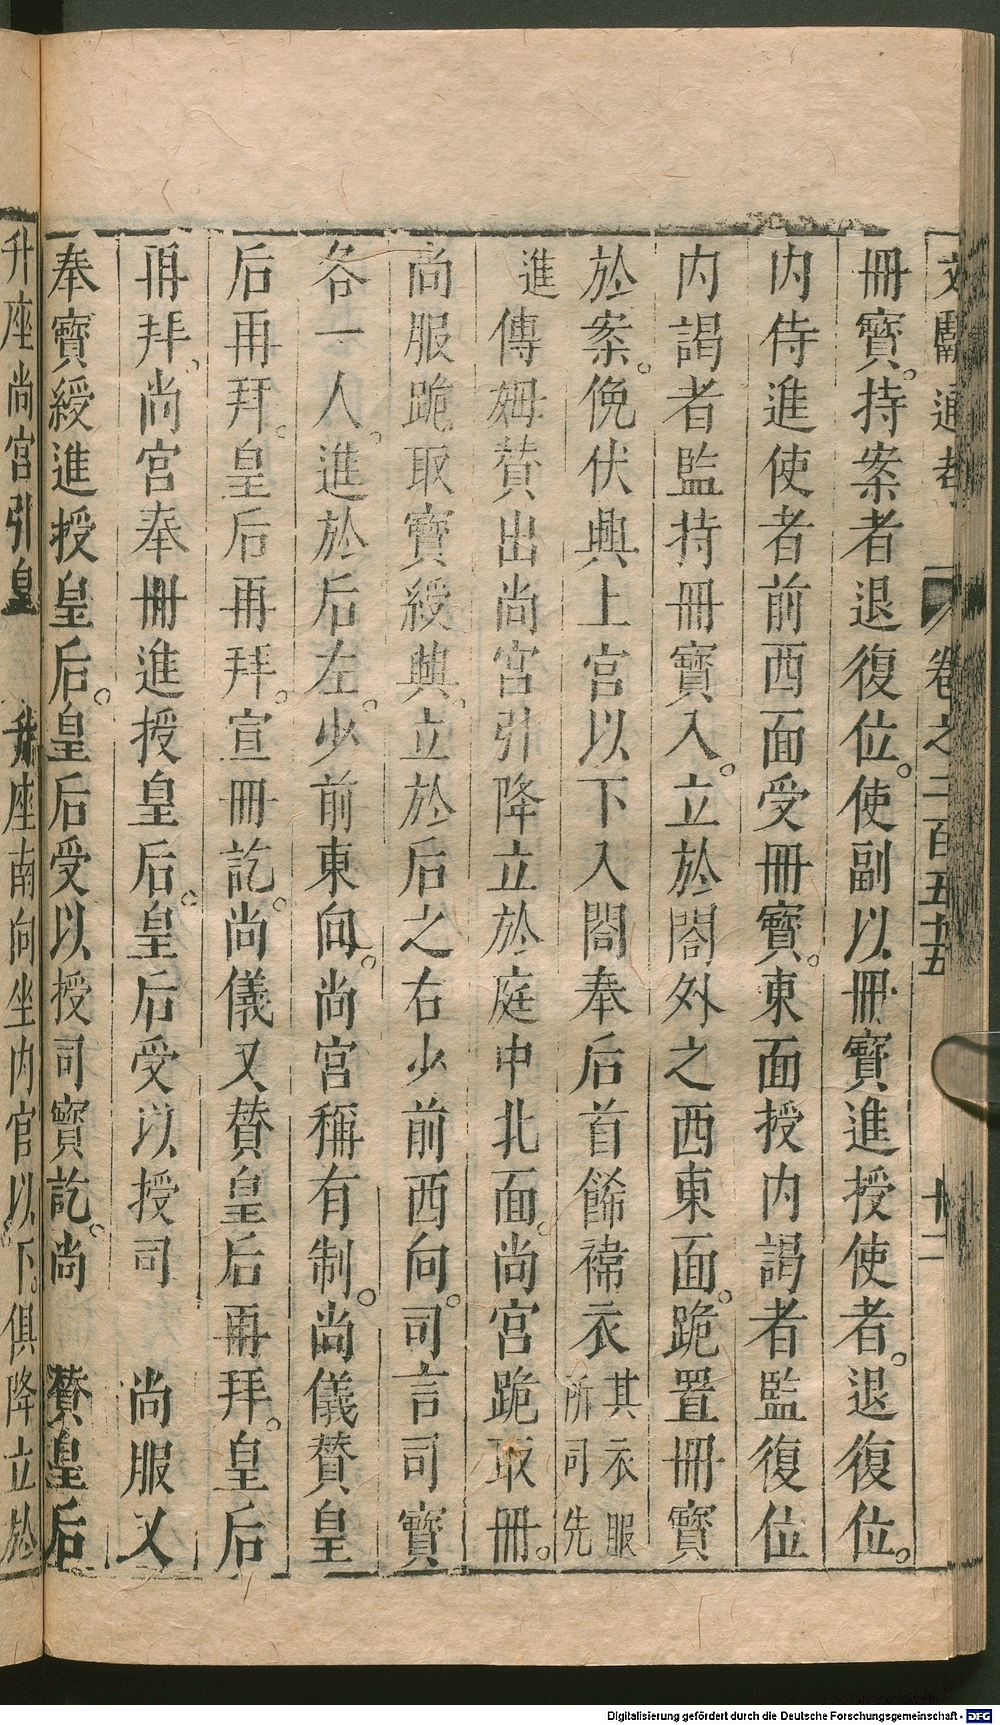 文獻通考 卷之二百五十五 十二
冊寶持案者退復位。使副以冊寶進授使者。退復位。
内侍進使者前西面受冊寶。東面授内謁者監復位
内謁者監持冊寶入。立於閤外之西東面。跪置冊寶
於案。俛伏興上宮以下入閤奉后首餙褘衣其衣服所司先
進傳姆賛出尚宮引降立於庭中北面。尚宮跪取冊。
尚服跪取寶綬興。立於后之右少前西向。司言司寶
各一人。進於后左。少前東向。尚宮稱有制。尚儀賛皇
后再拜。皇后再拜。宣冊訖。尚儀又賛皇后再拜。皇后
再拜。尚宮奉冊進授皇后。皇后受以授司 尚服又
奉寶綬進授皇后。皇后受以授司寶訖。尚 賛皇后
升座尚宮引皇 升座南向坐内官以下。俱降立於
Digitalisierung gefördert durch die Deutsche Forschungsgemeinschaft - DFG